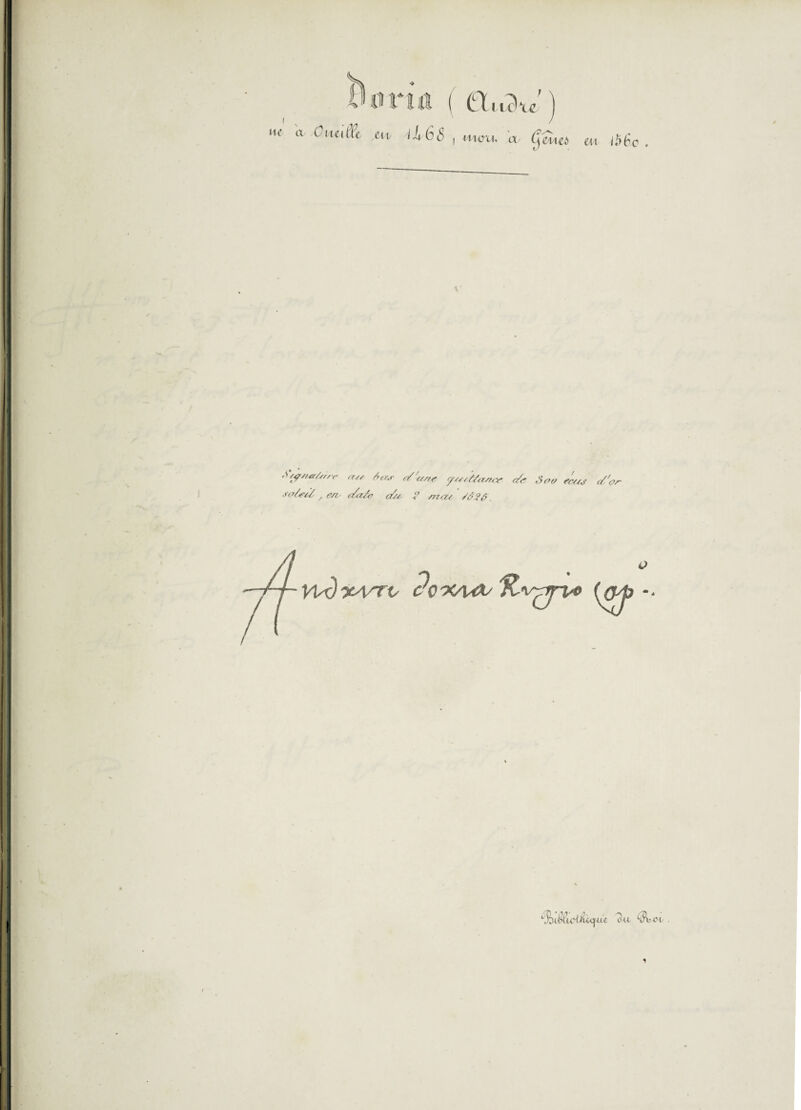 Doria ( André )
né à Oneille en 1468 , mort à Gênes en 1560 .
Signature au bas d'une quittance de 800 écus d'or
soleil , en date du 2 mai 1528 .
Bibliothèque du Roi .